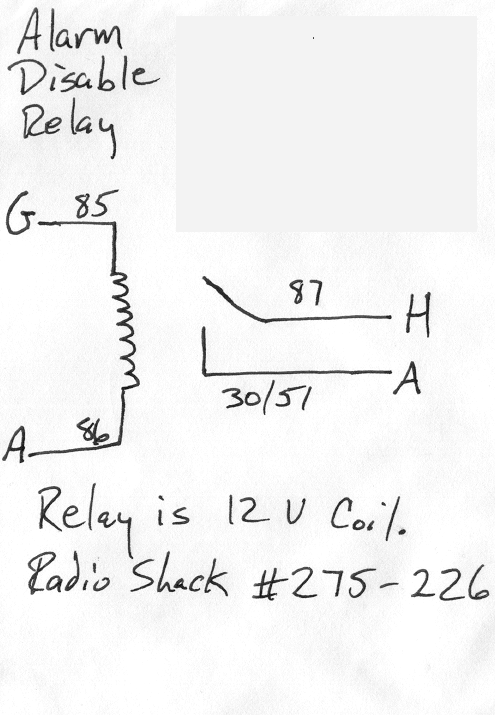 Alarm
Disable
Relay
G 85
87 H
A
30/51
A 86
Relay is 12 V Coil.
Radio Shack #275-226